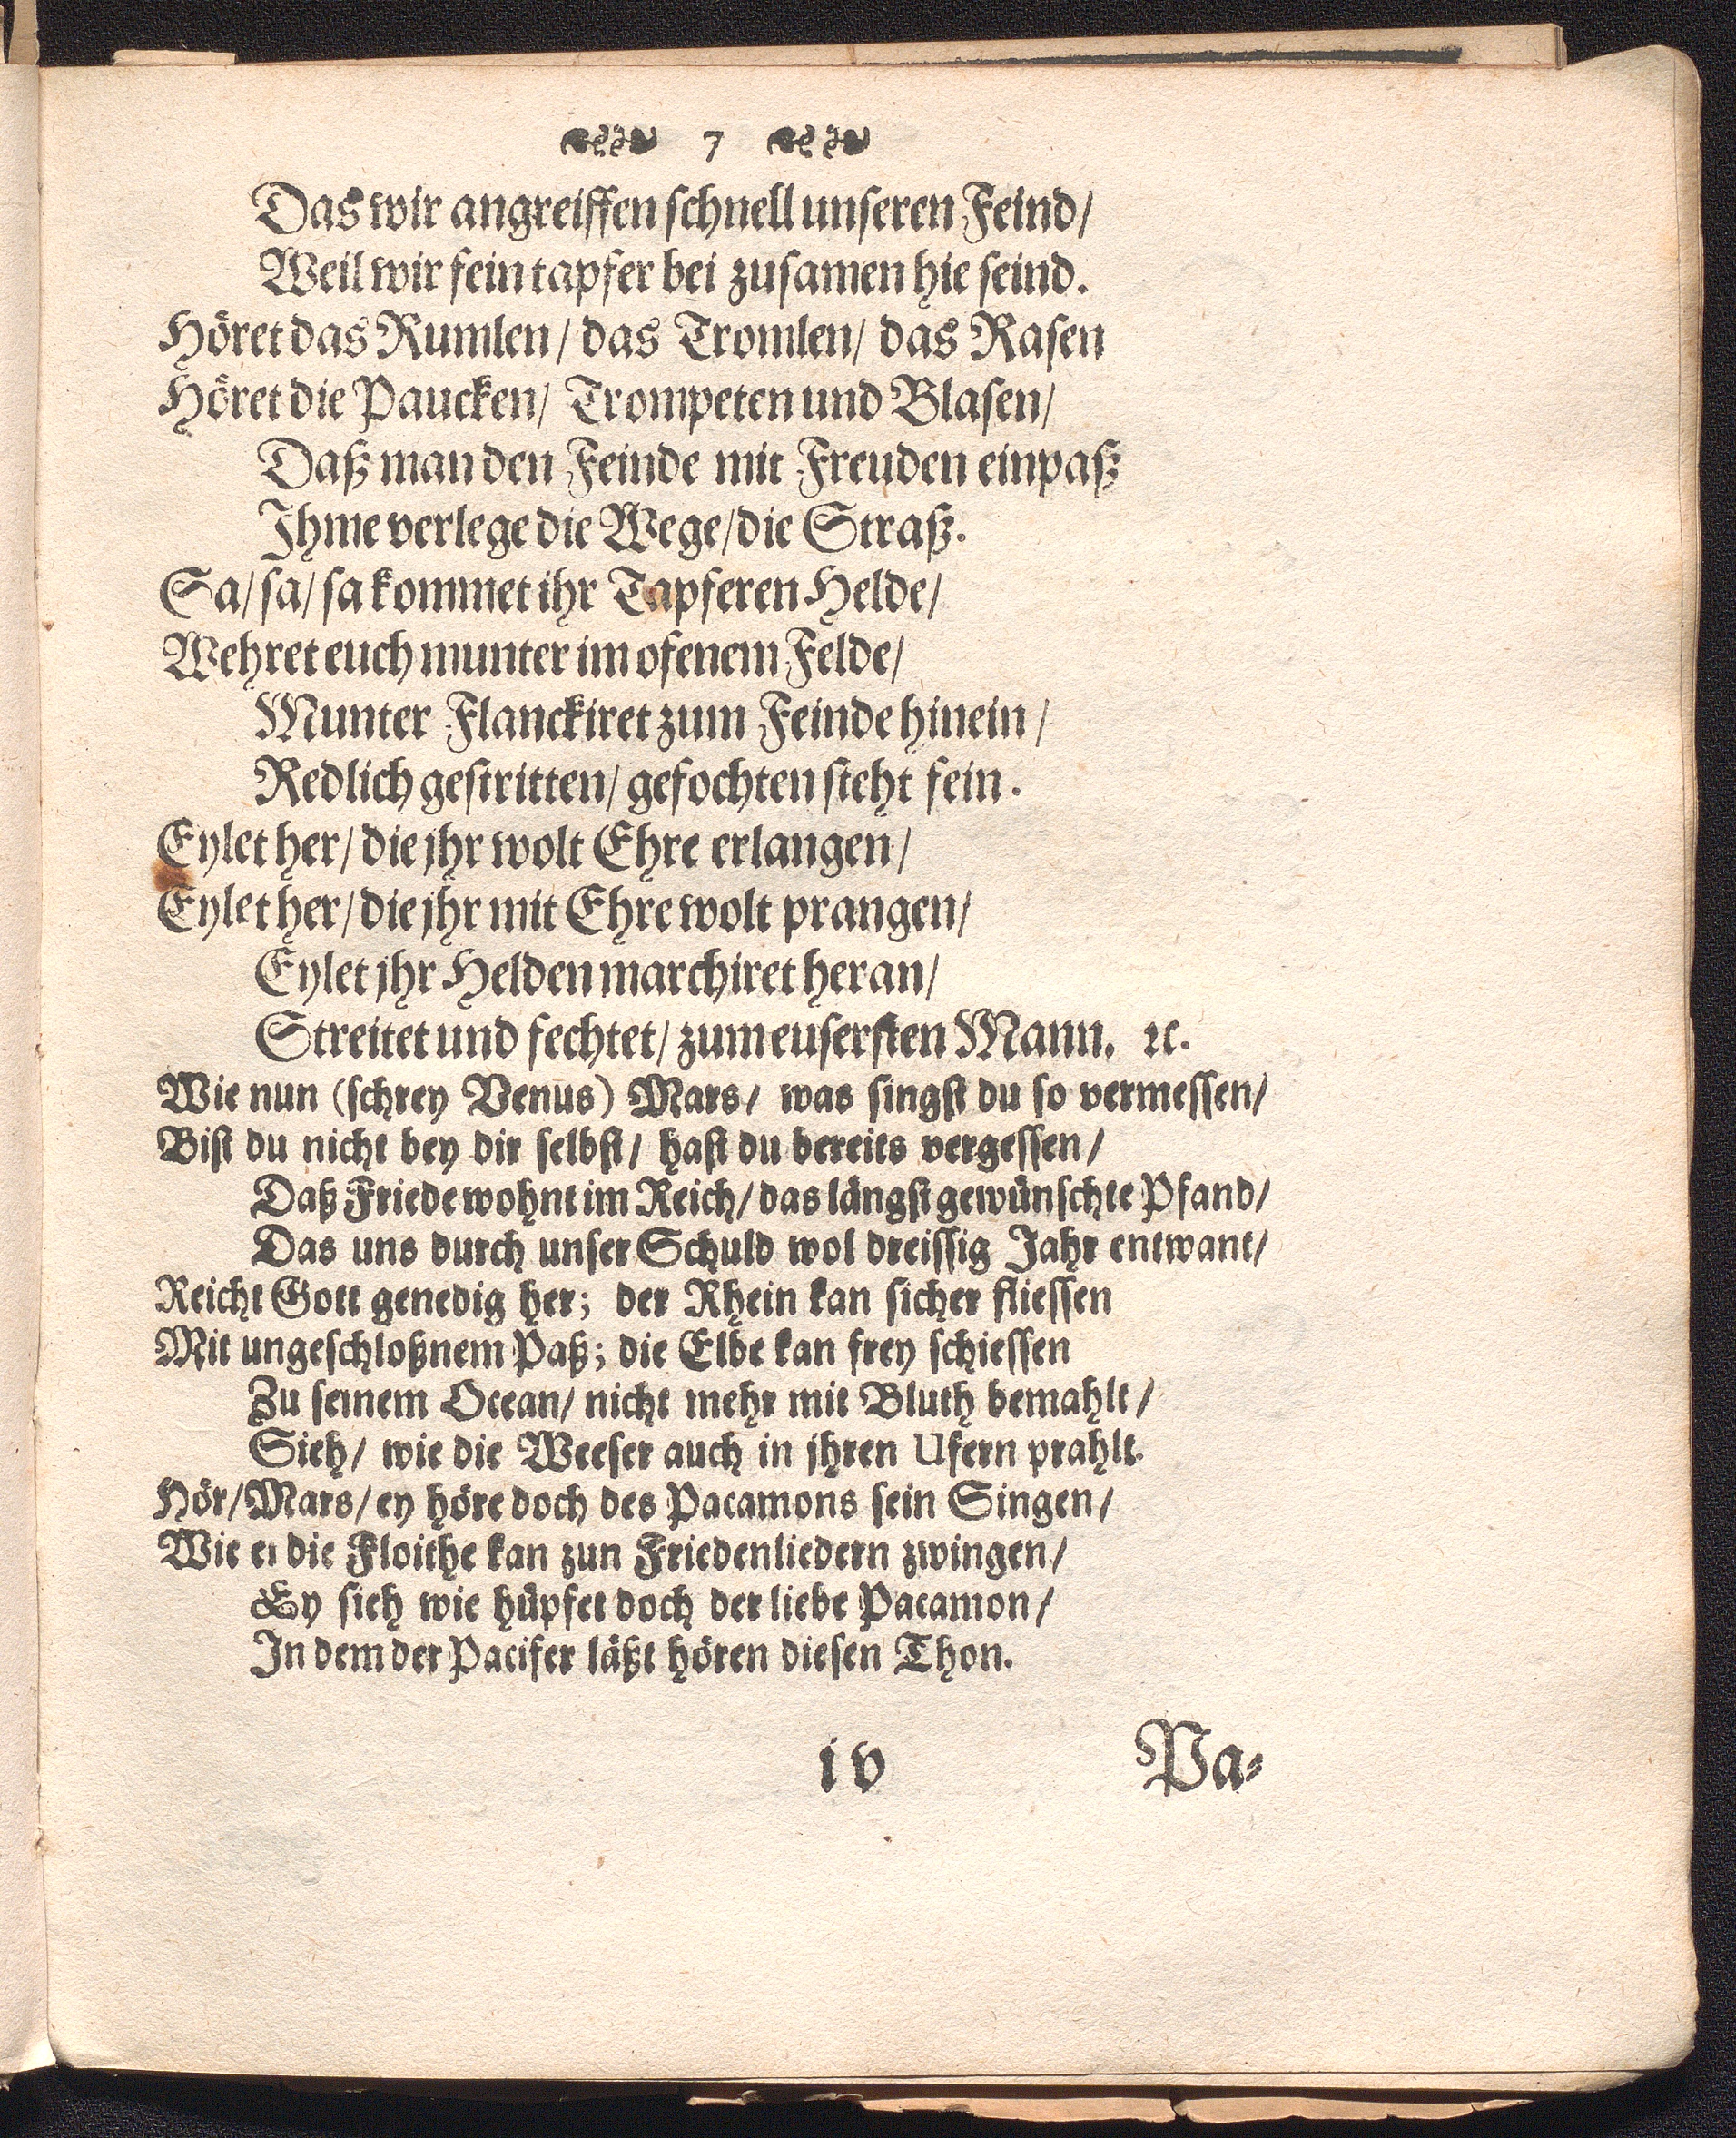 7
Das wir angreiffen schnell unseren Feind/
Weil wir fein tapfer bei zusamen hie seind.
Höret das Rumlen/ das Tromlen/ das Rasen
Höret die Paucken/ Trompeten und Blasen/
Daß man den Feinde mit Freuden einpaß
Ihme verlege die Wege/ die Straß.
Sa/ sa/ sa kommet ihr Tapferen Helde/
Wehret euch munter im ofenem Felde/
Munter Flanckiret zum Feinde hinein/
Redlich gestritten/ gefochten steht fein.
Eylet her/ die jhr wolt Ehre erlangen/
Eylet her/ die jhr mit Ehre wolt prangen/
Eylet jhr Helden marchiret heran/
Streitet und fechtet/ zum eusersten Mann. ꝛc.
Wie nun (schrey Venus) Mars/ was singst du so vermessen/
Bist du nicht bey dir selbst/ hast du bereits vergessen/
Daß Friede wohnt im Reich/ das längst gewünschte Pfand/
Das uns durch unser Schuld wol dreissig Jahr entwant/
Reicht Gott genedig her; der Rhein kan sicher fliessen
Mit ungeschloßnem Paß; die Elbe kan frey schiessen
Zu seinem Ocean/ nicht mehr mit Bluth bemahlt/
Sieh/ wie die Weeser auch in jhren Ufern prahlt.
Hör/ Mars/ ey höre doch des Pacamons sein Singen/
Wie er die Floithe kan zun Friedenliedern zwingen/
Ey sieh wie hüpfet doch der liebe Pacamon/
In dem der Pacifer läßt hören diesen Thon.
iv Pa-